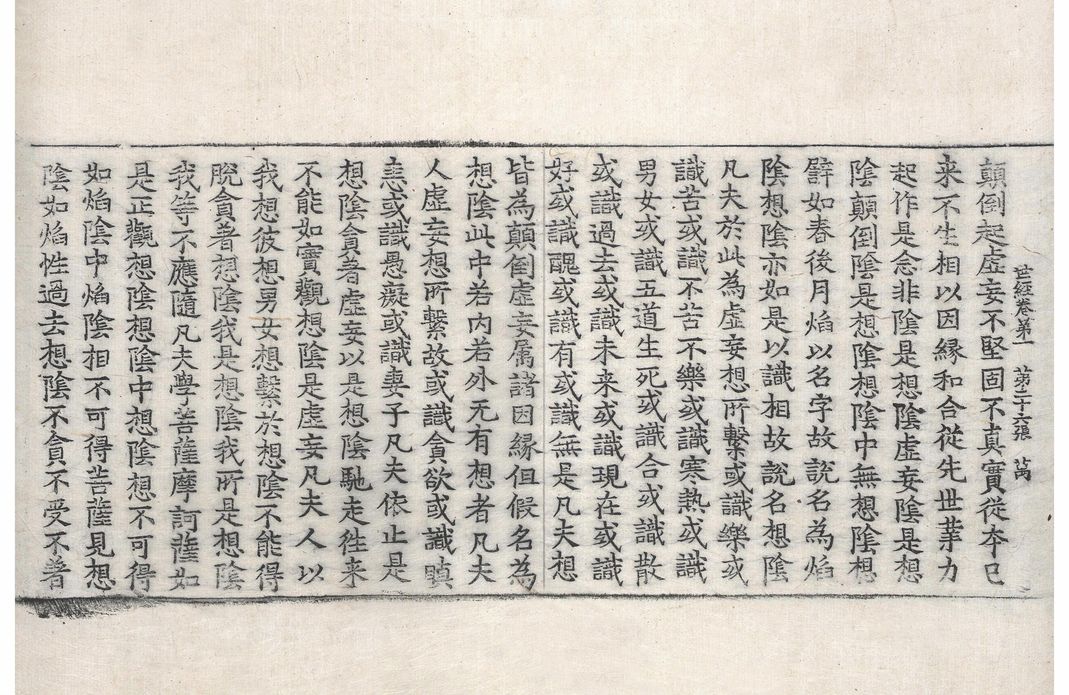 世經卷第一　第二十六張　萬
顛倒起虛妄不堅固不真實從本已
来不生相以因緣和合從先世業力
起作是念非陰是想陰虛妄陰是想
陰顛倒陰是想陰想陰中無想陰想
譬如春後月焰以名字故說名為焰
陰想陰亦如是以識相故說名想陰
凡夫於此為虛妄想所繫或識樂或
識苦或識不苦不樂或識寒熱或識
男女或識五道生死或識合或識散
或識過去或識未来或識現在或識
好或識醜或識有或識無是凡夫想
皆為顛倒虛妄属諸因緣但假名為
想陰此中若內若外无有想者凡夫
人虛妄想所繫故或識貪欲或識瞋
恚或識愚癡或識妻子凡夫依止是
想陰貪著虛妄以是想陰馳走往来
不能如實觀想陰是虛妄凡夫人以
我想彼想男女想繫於想陰不能得
脫貪著想陰我是想陰我所是想陰
我等不應隨凡夫學菩薩摩訶薩如
是正觀想陰想陰中想陰想不可得
如焰陰中焰陰相不可得菩薩見想
陰如焰性過去想陰不貪不受不著